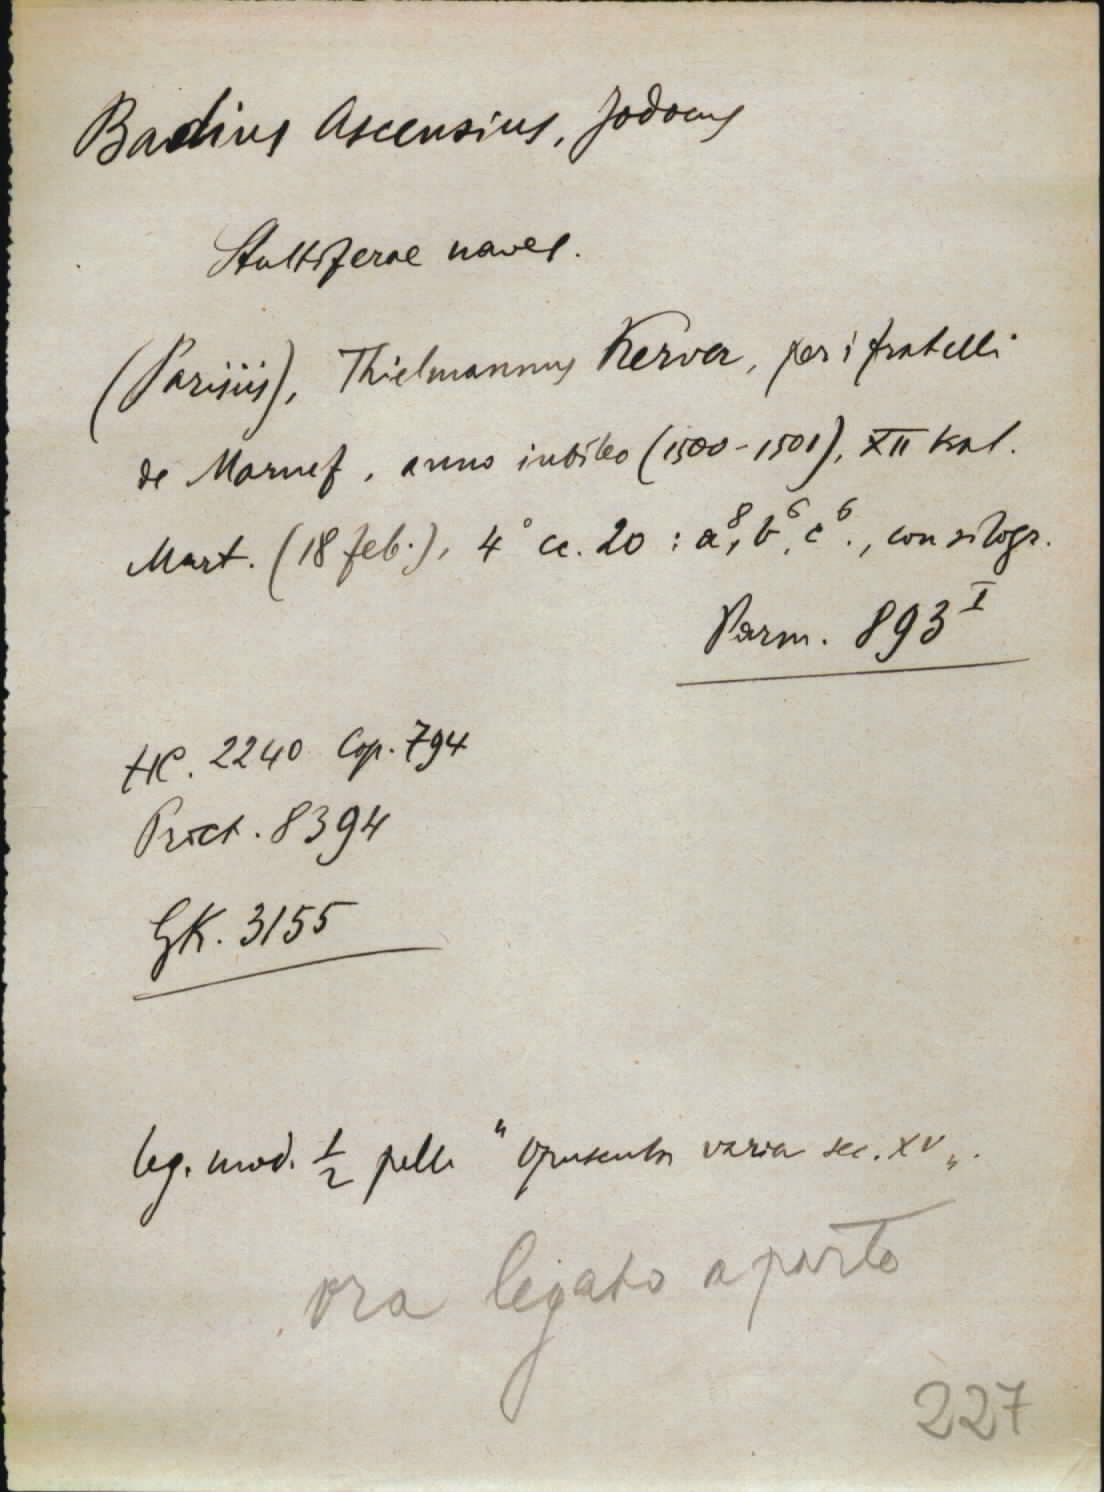 Badius Ascensius, Jodocus
Stultiferae naves.
(Parisiis), Thielmannus Kerver, per i fratelli
de Marnef, anno iubileo (1500-1501), XII kal.
Mart. (18 feb.), 4° cc. 20 : a⁸, b⁶, c⁶., con silogr.
Parm. 893 I
HC. 2240 Cop. 794
Proct. 8394
GK. 3155
leg. mod. 1/2 pelle "Opuscula varia sec. XV„.
ora legato a parte
227